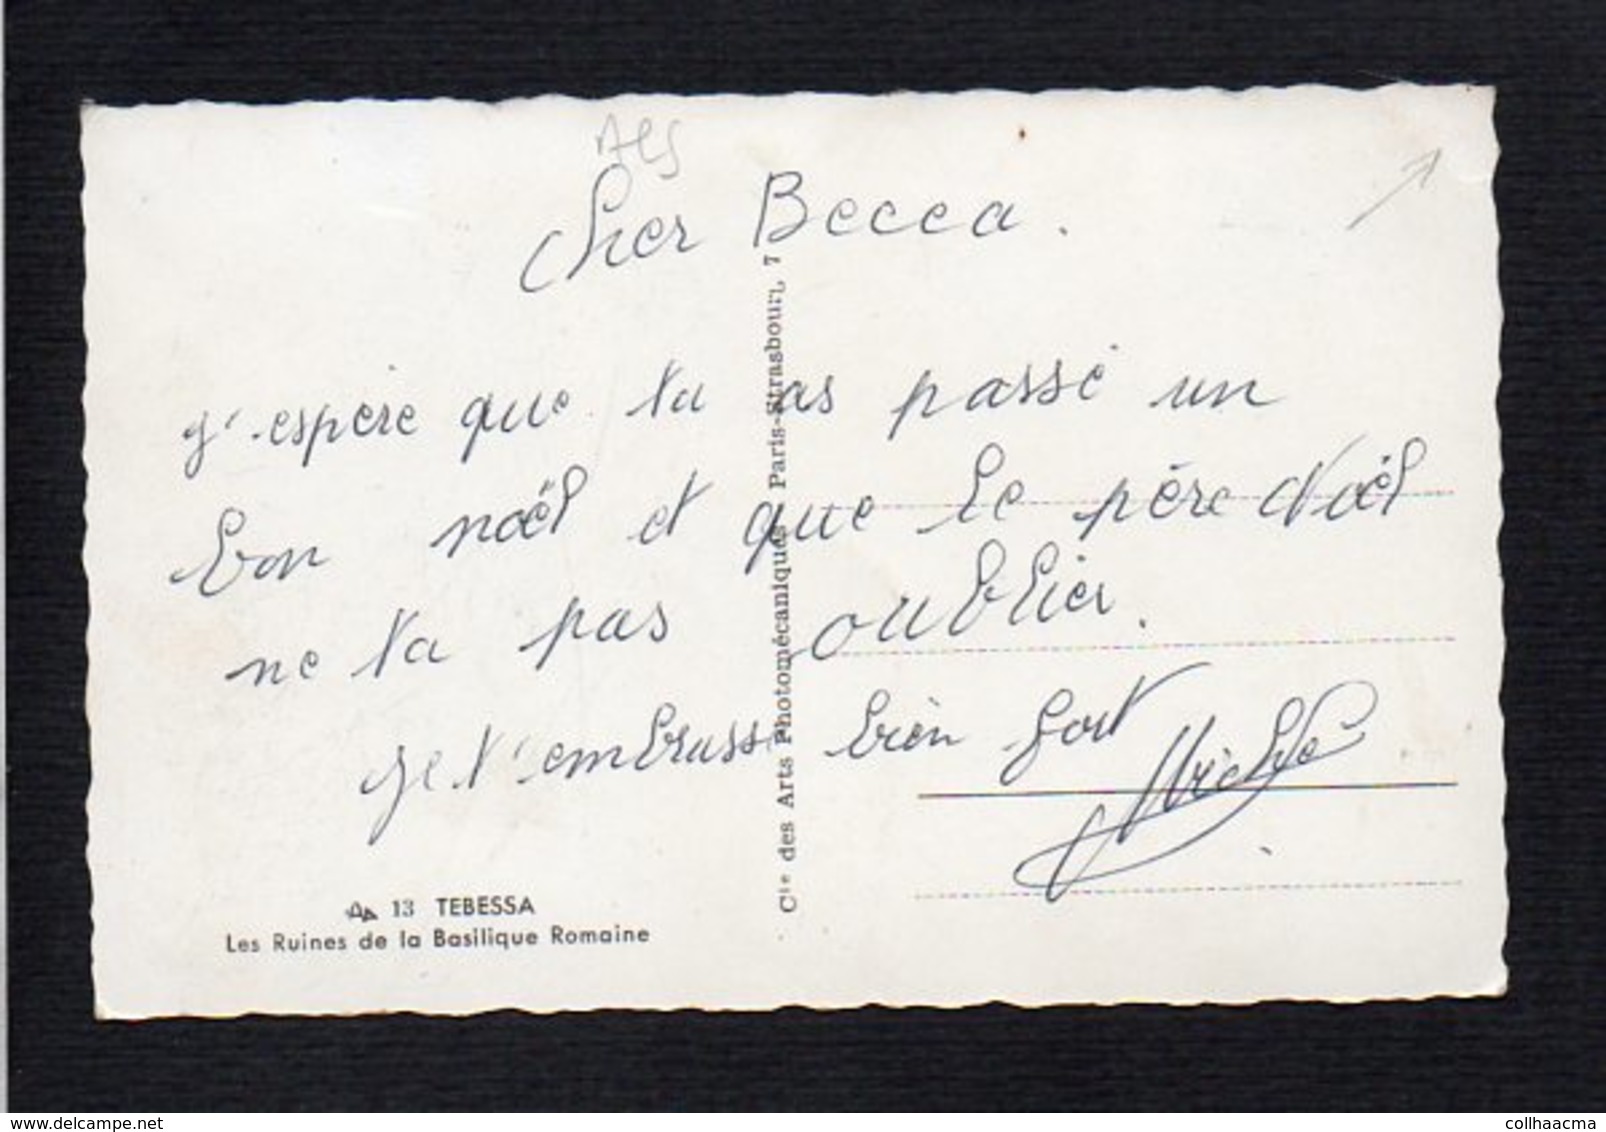 ALG
Cher Becca.
J'espère que tu as passé un
bon noël et que le père Noël
ne ta pas oublier.
Je t'embrasse bien fort
Michel
13 TEBESSA
Les Ruines de la Basilique Romaine
Cie des Arts Photomécaniques Paris-Strasbourg 7
www.delcampe.net
collhaacma